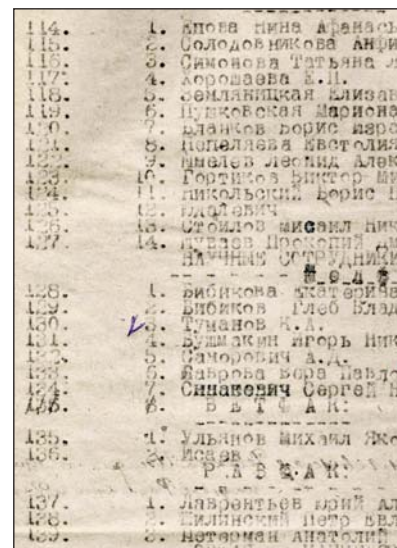 114. 1. Ипова Нина Афанась
115. 2. Солодовникова Анфи
116. 3. Симонова Татьяна Л
117. 4. Хорошаева Е.П.
118. 5. Земляницкая Елизав
119. 6. Пушковская Мариона
120. 7. Бланков Борис Марс
121. 8. Пепеляева Евстолия
122. 9. Шмелев Леонид Алек
123. 10. Гортиков Виктор Ми
124. 11. Никольский Борис
125. 12.
126. 13. Стоилов Мисаил Ник
127. 14. Прокопий
НАУЧНЫЕ СОТРУДНИКИ
128. 1. Бибикова Екатерина
129. 2. Бибиков Глеб Влад
130. 3. Туманов К.А.
131. 4. Бушмакин Игорь Ник
132. 5. Саморович А.Д.
133. 6. Лаврова Вера Павло
134. 7. Синакевич Сергей
В Е Т Ф А К:
135. 1. Ульянов Михаил Яко
136. 2. Исаев
Р А Б Ф А К:
137. 1. Лаврентьев Юрий Ал
138. 2. Пилинский Петр
139. 3. Петерман Анатолий